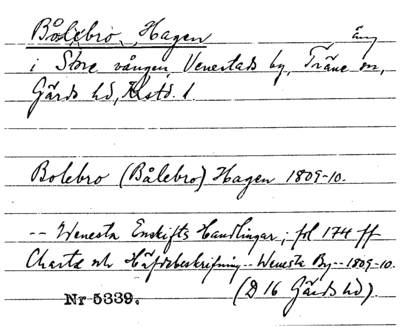 Bålebro, Hagen äng
i Store vången, Venestads by, Träne sn,
Gärds hd, Kstds. l.
Bolebro (Bålebro) Hagen 1809-10.
-- Wenesta Enskifts Handlingar; fol 174 ff
Charta och Häfdebeskrifning -- Wenesta By -- 1809-10.
Nr 5339. (D 16 Gärds hd).